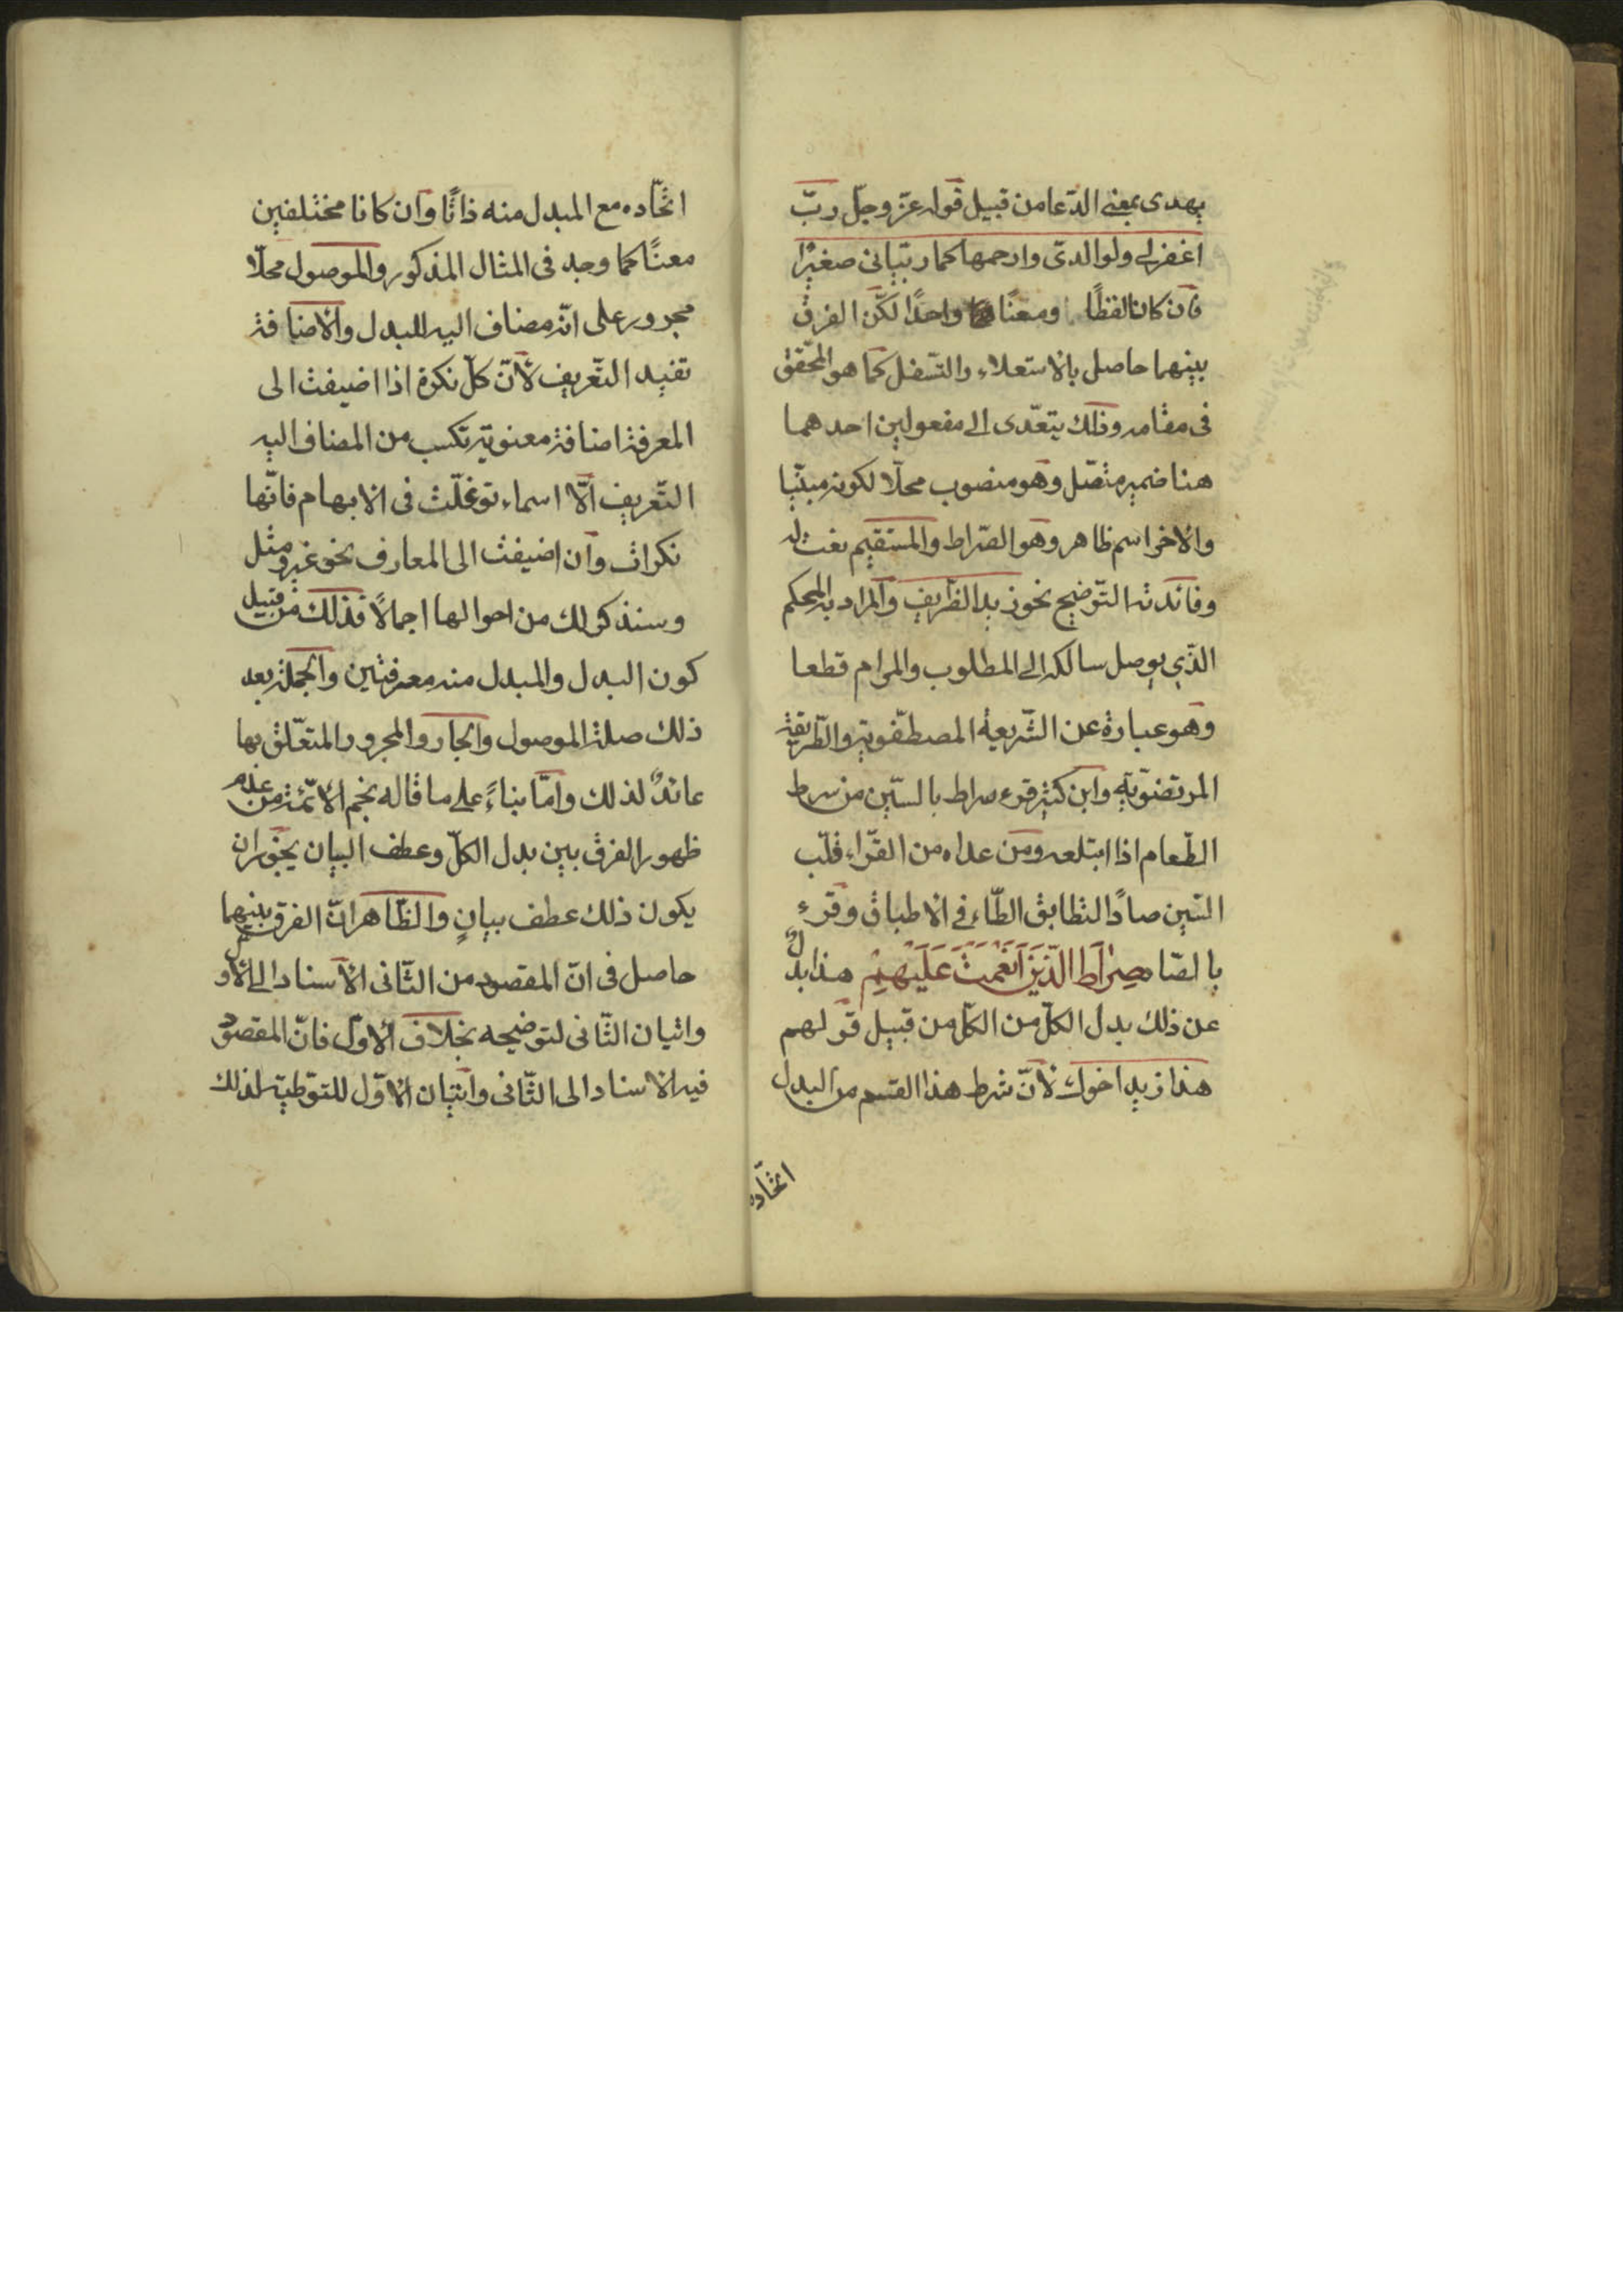 يهدى بمعنى الدّعا من قبيل قوله عزّ وجلّ ربّ
اغفر لى ولوالدىّ وارحمهما كما ربّيانى صغيرًا
فان كانا لفظًا ومعنًا واحدًا لكنّ الفرق
بينهما حاصل بالاستعلاء والتّسفل كما هو المحّقق
فى مقامه وذلك يتعّدى الى مفعولين احدهما
هنا ضمير متصّل وهو منصوب محلّا لكونه مبنيّا
والاخر اسم ظاهر وهو الصّراط والمستقيم نعت له
وفائدته التّوضيح نحو زيد الظّريف والمراد به المحكم
الذّى يوصل سالكه الى المطلوب والمرام قطعا
وهو عبارة عن الشّريعة المصطفّوية والطّريقة
المرتضوّية وابن كثير قرء سراط بالسّين من سرط
الطّعام اذا ابتلعه ومن عداه من القرّاء قلب
السّين صادًا لتطابق الطّاء فى الاطباق وقرء
بالصّاد صِرٰاطَ الَّذينَ اَنْعَمتَ عَلَيْهِمْ هذا بدلٌ
عن ذلك بدل الكلّ من الكلّ من قبيل قولهم
هذا زيد اخوك لانّ شرط هذا القسم من البدل
اتّحاده
اتّحاده مع المبدل منه ذاتًا وان كانا مختلفين
معنًا كما وجد فى المثال المذكور والموصول محلّا
مجرور على انّه مضاف اليه للبدل والاضافة
تفيد التّعريف لانّ كلّ نكرة اذا اضيفت الى
المعرفة اضافة معنوية تكسب من المضاف اليه
التّعريف الّا اسماء توغلّت فى الابهام فانّها
نكرات وان اضيفت الى المعارف نحو غير ومثل
وسنذكر لك من احوالها اجمالًا فذلك من قبيل
كون البدل والمبدل منه معرفتين والجملة بعد
ذلك صلة الموصول والجار والمجرور المتعلّق بها
عائدٌ لذلك وامّا بناءً على ما قاله نجم الائمّة من عدم
ظهور الفرق بين بدل الكلّ وعطف البيان يجوز ان
يكون ذلك عطف بيانٍ والظّاهر انّ الفرق بينهما
حاصل فى انّ المقصود من الثّانى الاسناد الى الاوّل
واتيان الثّانى لتوضيحه بخلاف الاوّل فانّ المقصود
فيه الاسناد الى الثّانى واتيان الاوّل للتوّطية لذلك